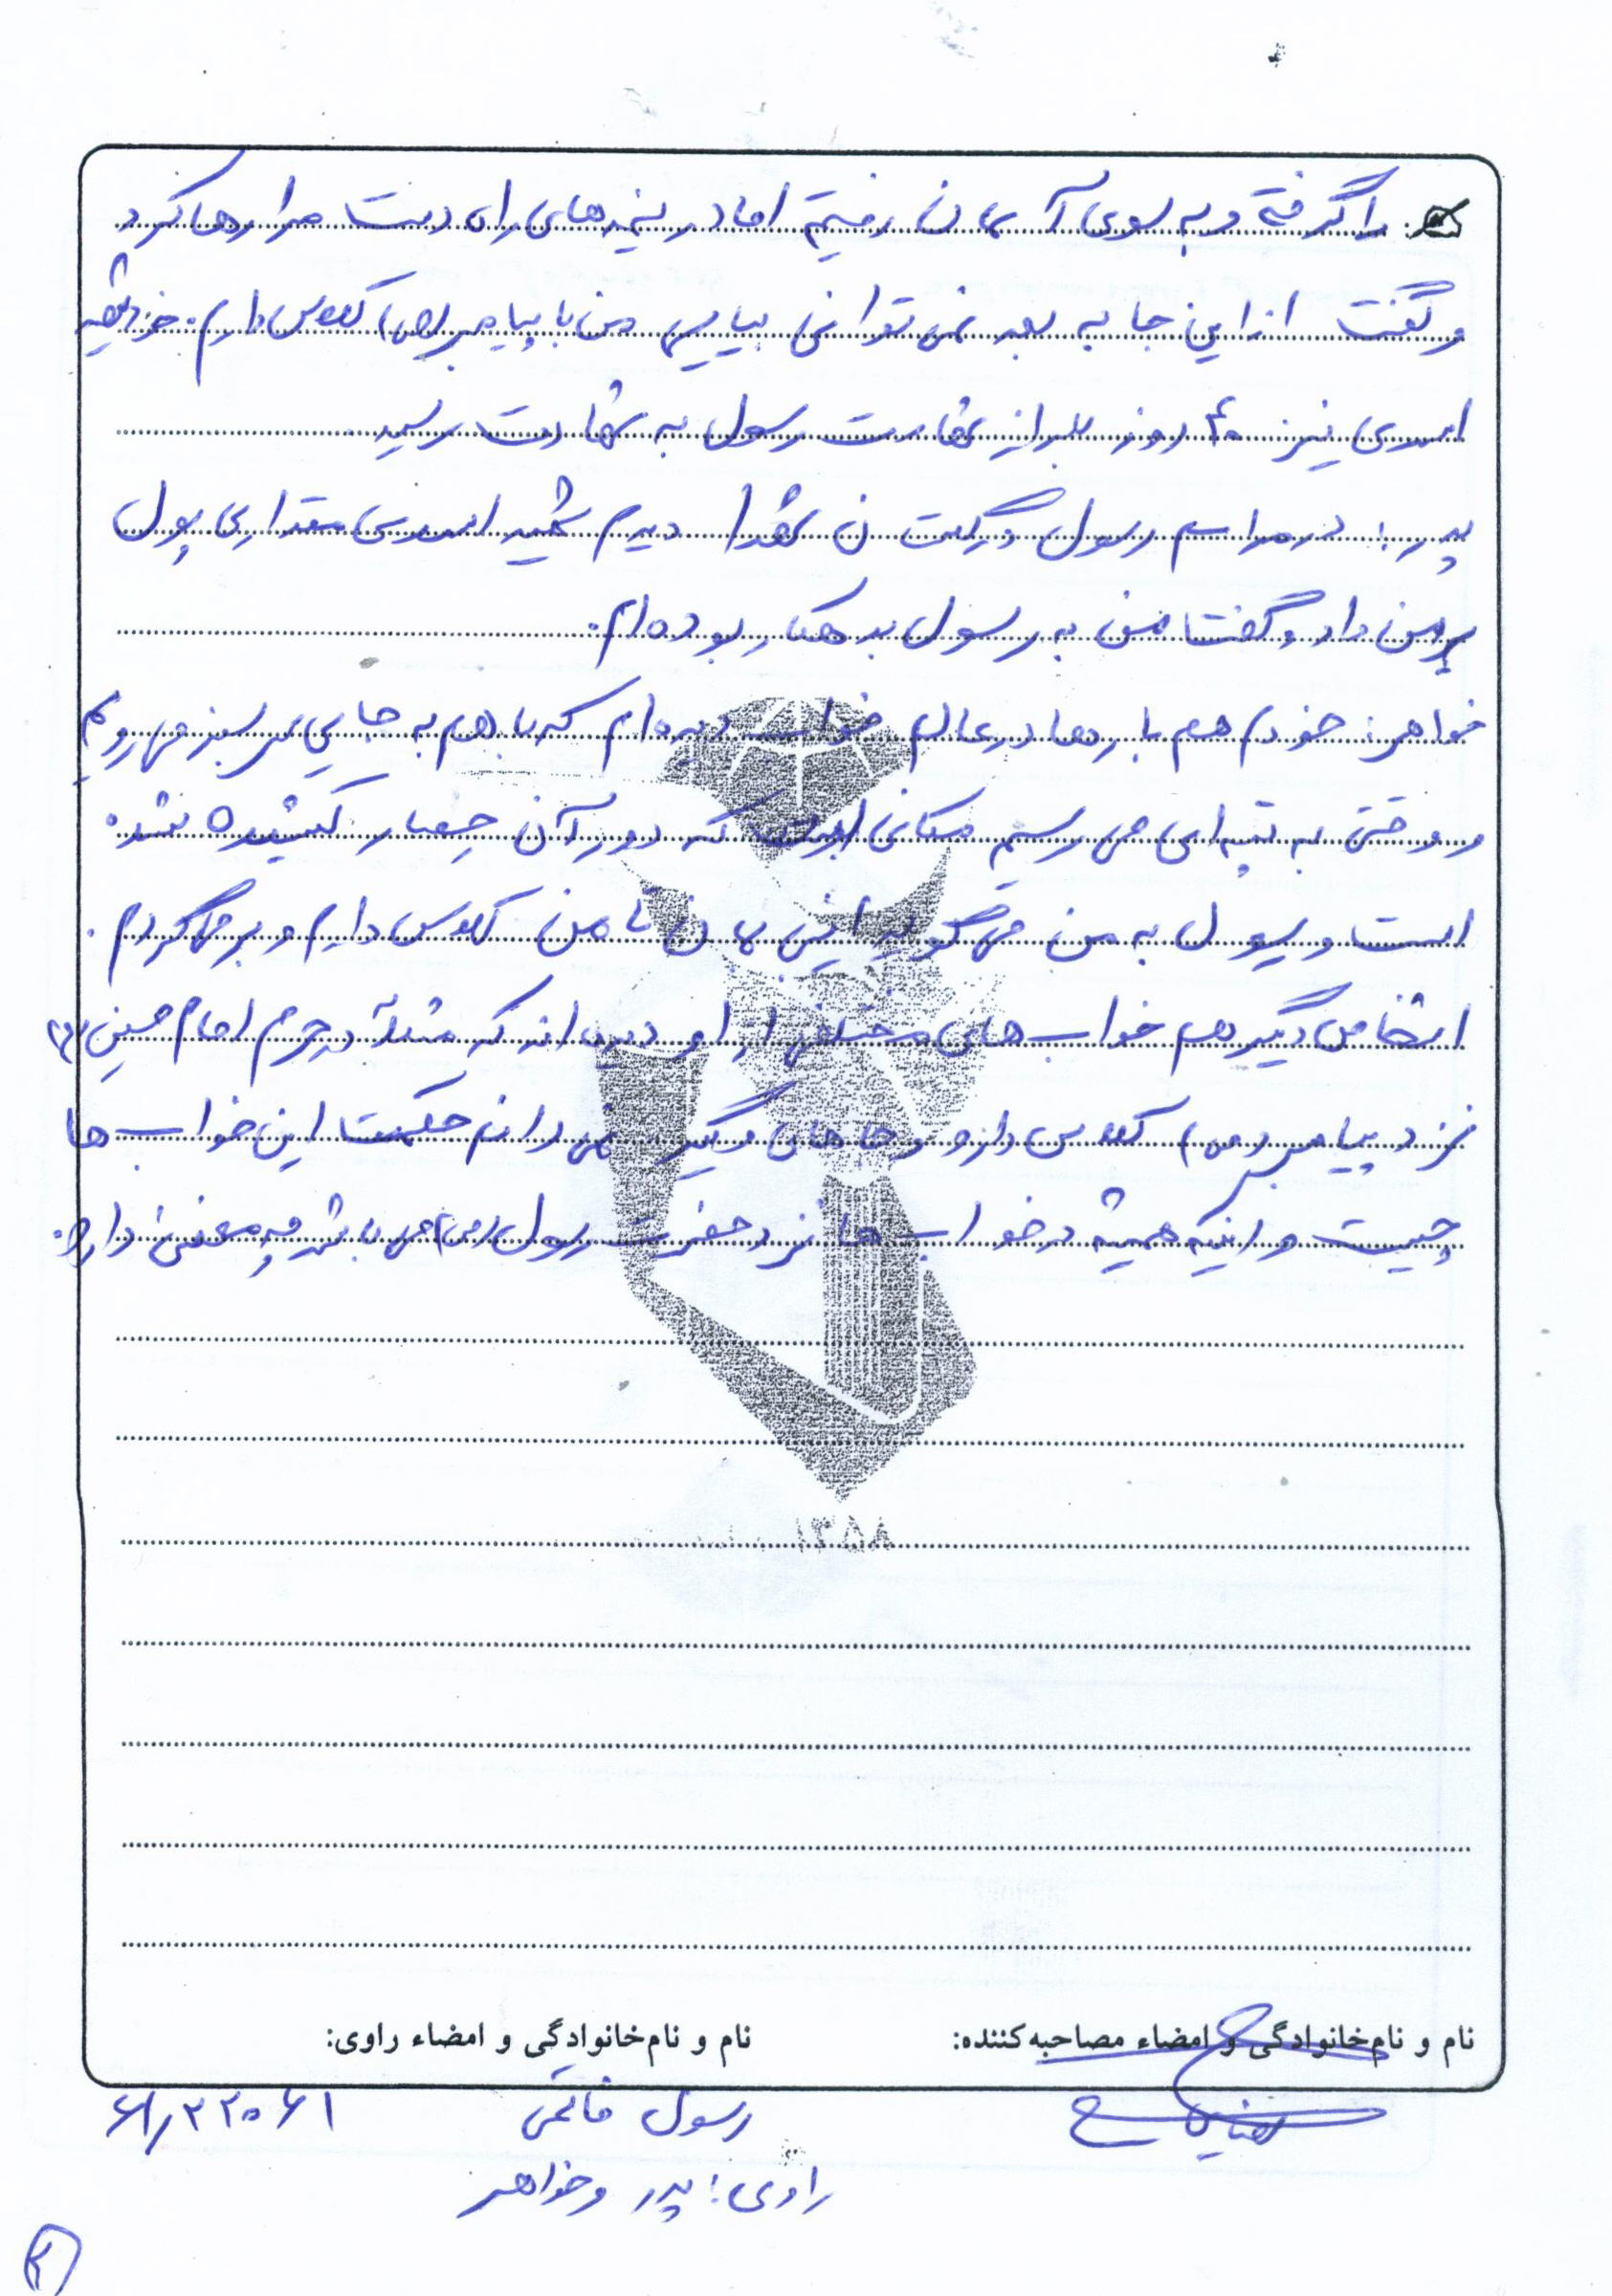 را گرفته و به سوی آسمان رفتیم اما در نیمه‌های راه دست مرا رها کرد
و گفت از این جا به بعد نمی‌توانی بیایی من با پیامبر (ص) کلاس دارم. خود شهید
اسدی نیز ۴۰ روز بعد از شهادت رسول به شهادت رسید
پدر: در مراسم رسول در گلستان شهدا دیدم شهید اسدی مقداری پول
به من داد و گفت من به رسول بدهکار بوده‌ام.
خواهر: خودم هم بارها در عالم خواب دیده‌ام که با هم به جایی سرسبز می‌رویم
و وقتی به تپه‌ای می‌رسیم مکانی است که دور آن حصار کشیده شده
است و رسول به من می‌گوید اینجا بمان تا من کلاس دارم و برمی‌گردم.
اشخاص دیگر هم خواب‌های مختلفی از او دیده‌اند که مثلاً در حرم امام حسین (ع)
نزد پیامبر (ص) کلاس دارد و جاهای دیگر نمی‌دانم حکمت این خواب‌ها
چیست و اینکه همیشه در خواب‌ها نزد حضرت رسول (ص) می‌باشد چه معنی دارد.
۱۳۵۸
نام و نام‌خانوادگی و امضاء مصاحبه‌کننده:
نام و نام‌خانوادگی و امضاء راوی:
رسول
راوی: پدر و خواهر